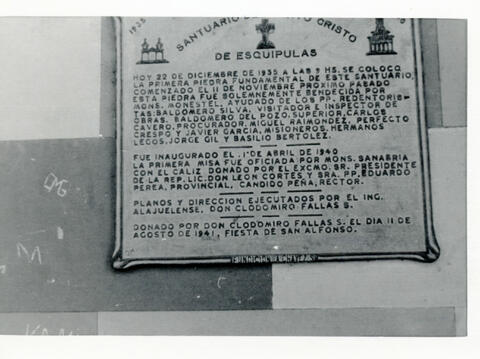 1935
SANTUARIO CRISTO
DE ESQUIPULAS
HOY 22 DE DICIEMBRE DE 1935 A LAS 9 HS. SE COLOCO
LA PRIMERA PIEDRA FUNDAMENTAL DE ESTE SANTUARIO,
COMENZADO EL 11 DE NOVIEMBRE PROXIMO PASADO
ESTA PIEDRA FUE SOLEMNEMENTE BENDECIDA POR
MONS. MONESTEL, AYUDADO DE LOS PP. REDENTORIS-
TAS: BALDOMERO SILVA, VISITADOR E INSPECTOR DE
OBRAS. BALDOMERO DEL POZO, SUPERIOR, CARLOS
CAVERO, PROCURADOR, MIGUEL RAIMONDEZ, PERFECTO
CRESPO Y JAVIER GARCIA, MISIONEROS. HERMANOS
LEGOS, JORGE GIL Y BASILIO BERTOLEZ.
FUE INAUGURADO EL 1º DE ABRIL DE 1940
LA PRIMERA MISA FUE OFICIADA POR MONS. SANABRIA
CON EL CALIZ DONADO POR EL EXCMO. SR. PRESIDENTE
DE LA REP. LIC. DON LEON CORTES Y SRA. PP. EDUARDO
PEREA, PROVINCIAL, CANDIDO PEÑA, RECTOR.
PLANOS Y DIRECCION EJECUTADOS POR EL ING.
ALAJUELENSE, DON CLODOMIRO FALLAS S.
DONADO POR DON CLODOMIRO FALLAS S. EL DIA 11 DE
AGOSTO DE 1941, FIESTA DE SAN ALFONSO.
FUNDICION A. CHAVEZ S.
M